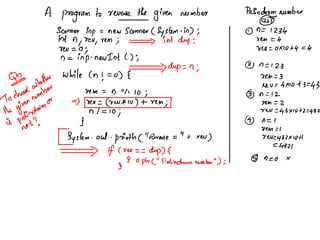 A program to reverse the given number
Scanner Inp = new Scanner (System.in);
int n, rev, rem; → int dup;
rev = 0;
n = inp.nextInt ();
→ dup = n;
while (n != 0) {
rem = n % 10;
⇒ rev = (rev*10) + rem;
n /= 10;
}
System.out.println ("Reverse = " + rev)
if (rev == dup) {
S.o.pln ("Palindrome number");
}
Qn
To check whether
the given number
is palindrome or
not?
Palindrome number
① n = 1234
rem = 4
rev = 0x10+4 = 4
② n = 123
rem = 3
rev = 4x10+3 = 43
③ n = 12
rem = 2
rev = 43x10+2 = 432
④ n = 1
rem = 1
rev = 432x10+1
= 4321
⑤ n = 0 x